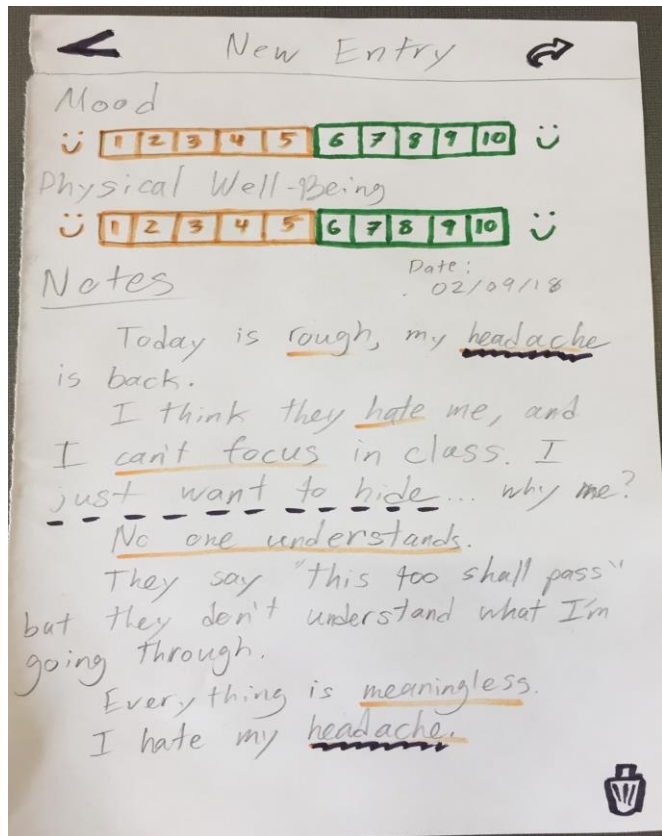 New Entry
Mood
1 2 3 4 5 6 7 8 9 10
Physical Well-Being
1 2 3 4 5 6 7 8 9 10
Notes
Date:
02/09/18
Today is rough, my headache
is back.
I think they hate me, and
I can't focus in class. I
just want to hide... why me?
No one understands.
They say "this too shall pass"
but they don't understand what I'm
going through.
Everything is meaningless.
I hate my headache.